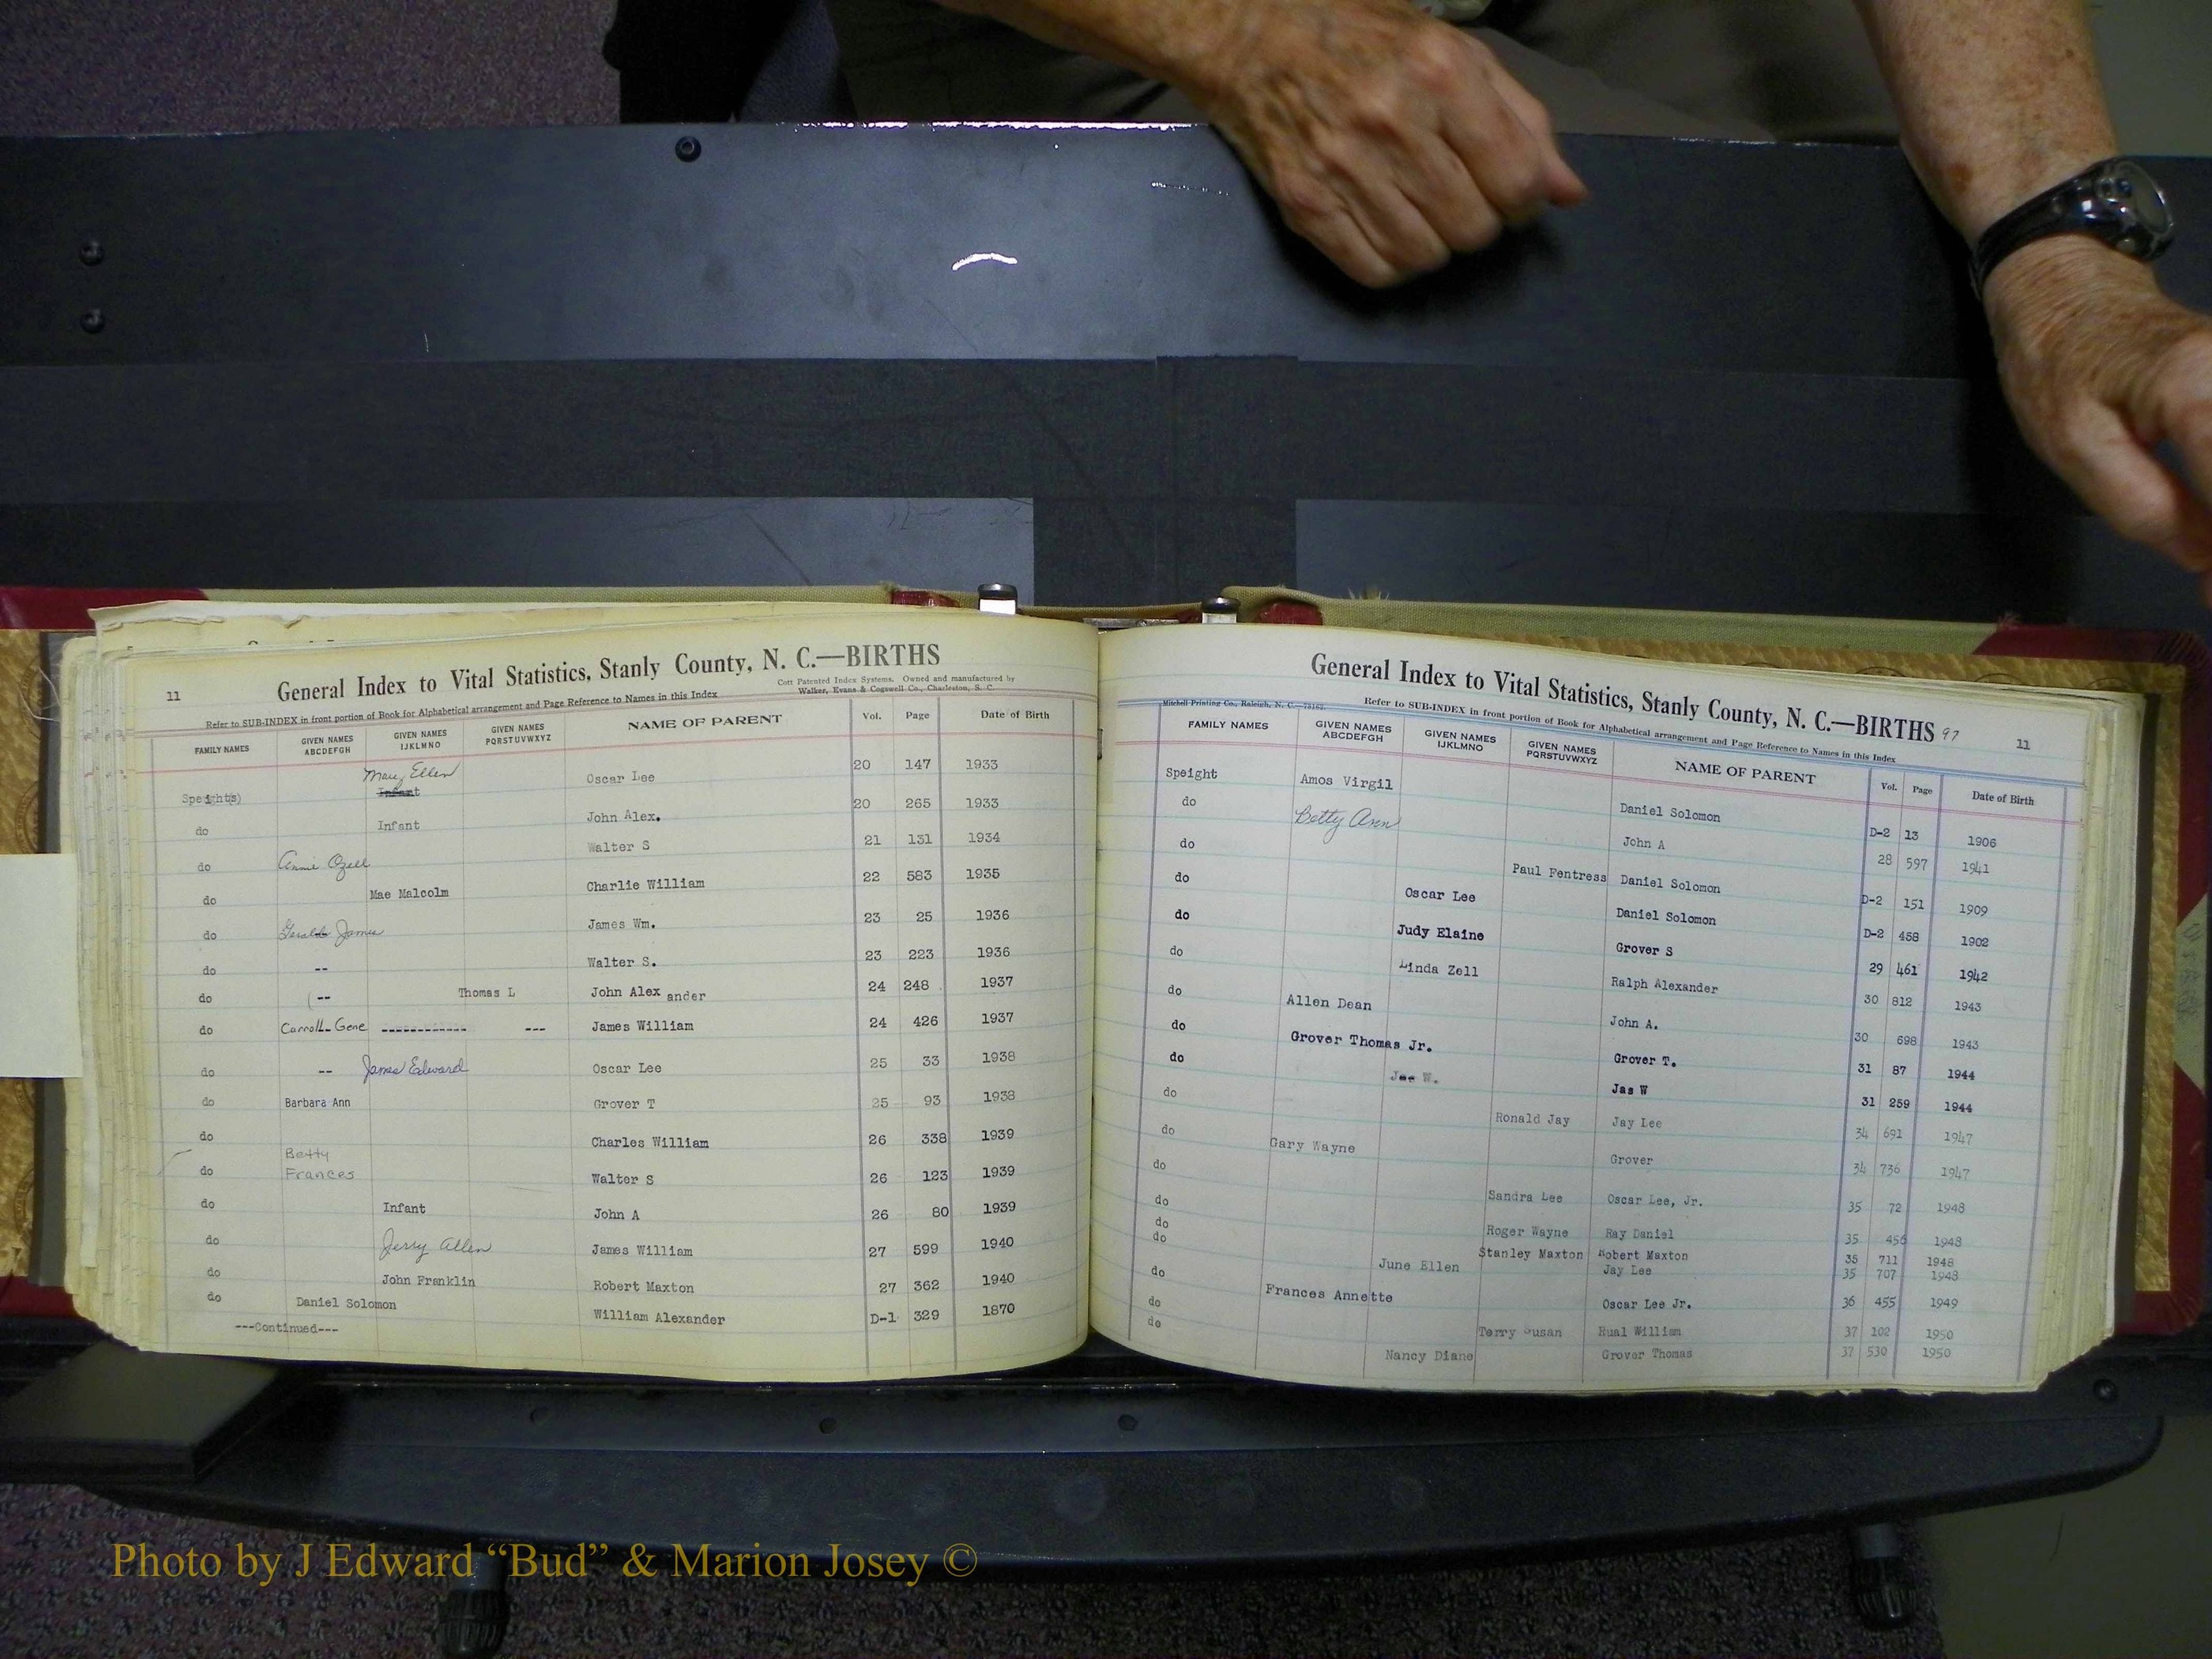 11
General Index to Vital Statistics, Stanly County, N. C.—BIRTHS
Cott Patented Index Systems. Owned and manufactured by
Walker, Evans & Cogswell Co., Charleston, S. C.
Refer to SUB-INDEX in front portion of Book for Alphabetical arrangement and Page Reference to Names in this Index
FAMILY NAMES GIVEN NAMES ABCDEFGH GIVEN NAMES IJKLMNO GIVEN NAMES PQRSTUVWXYZ NAME OF PARENT Vol. Page Date of Birth
Mary Ellen
Speight(s) Infant Oscar Lee 20 147 1933
do Infant John Alex. 20 265 1933
do Annie Ozell Walter S 21 131 1934
do Mae Malcolm Charlie William 22 583 1935
do Gerald James James Wm. 23 25 1936
do -- Walter S. 23 223 1936
do (-- Thomas L John Alex ander 24 248 1937
do Carroll Gene ------------ --- James William 24 426 1937
do -- James Edward Oscar Lee 25 33 1938
do Barbara Ann Grover T 25 93 1938
do Charles William 26 338 1939
do Betty Frances Walter S 26 123 1939
do Infant John A 26 80 1939
do Jerry Allen James William 27 599 1940
do John Franklin Robert Maxton 27 362 1940
do Daniel Solomon William Alexander D-1 329 1870
---Continued---
General Index to Vital Statistics, Stanly County, N. C.—BIRTHS 97 11
Mitchell Printing Co., Raleigh, N. C.
Refer to SUB-INDEX in front portion of Book for Alphabetical arrangement and Page Reference to Names in this Index
FAMILY NAMES GIVEN NAMES ABCDEFGH GIVEN NAMES IJKLMNO GIVEN NAMES PQRSTUVWXYZ NAME OF PARENT Vol. Page Date of Birth
Speight Amos Virgil Daniel Solomon D-2 13 1906
do Betty Ann John A 28 597 1941
do Paul Fentress Daniel Solomon D-2 151 1909
do Oscar Lee Daniel Solomon D-2 458 1902
do Judy Elaine Grover S 29 461 1942
do Linda Zell Ralph Alexander 30 812 1943
do Allen Dean John A. 30 698 1943
do Grover Thomas Jr. Grover T. 31 87 1944
do W. Jas W 31 259 1944
do Ronald Jay Jay Lee 34 691 1947
do Gary Wayne Grover 34 736 1947
do Sandra Lee Oscar Lee, Jr. 35 72 1948
do Roger Wayne Ray Daniel 35 456 1948
do Stanley Maxton Robert Maxton 35 711 1948
do June Ellen Jay Lee 35 707 1948
do Frances Annette Oscar Lee Jr. 36 455 1949
do Terry Susan Rual William 37 102 1950
do Nancy Diane Grover Thomas 37 530 1950
Photo by J Edward “Bud” & Marion Josey ©